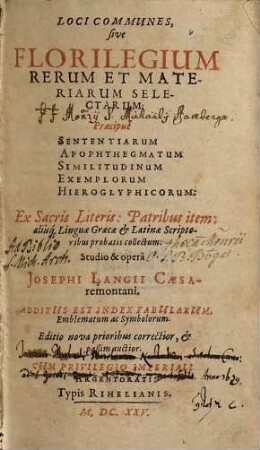 LOCI COMMUNES,
sive
FLORILEGIUM
RERUM ET MATE-
RIARUM SELE-
CTARUM;
Præcipue
SENTENTIARUM
APOPHTHEGMATUM
SIMILITUDINUM
EXEMPLORUM
HIEROGLYPHICORUM:
Ex Sacris Literis: Patribus item:
aliisq; Linguæ Græcæ & Latinæ Scripto-
ribus probatis collectum:
Ad Biblio
S. Mich. Arch.
Studio & operâ
JOSEPHI LANGII CÆSA-
remontani.
ADDITUS EST INDEX FABULARUM,
Emblematum ac Symbolorum.
Editio nova prioribus correctior, &
passim auctior.
CUM PRIVILEGIO IMPERIALI
ARGENTORATI,
Typis RIHELIANIS.
M. DC. XXV.